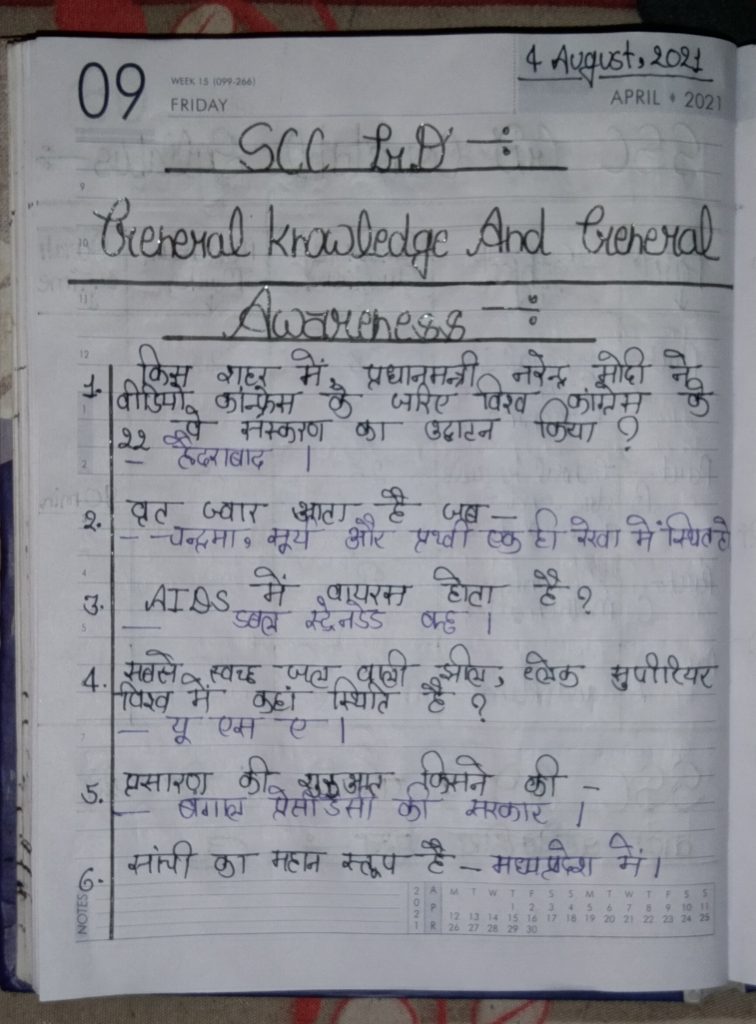 4 August, 2021
09
WEEK 15 (099-266)
FRIDAY
APRIL • 2021
SCC G.D -:
General knowledge And General
Awareness -:
1. किस शहर में, प्रधानमन्त्री नरेन्द्र मोदी ने
वीडियो कांफ्रेंस के जरिए विश्व कांग्रेस के
22 वे संस्करण का उद्घाटन किया ?
– हैदराबाद ।
2. वृहत ज्वार आता है जब –
– चन्द्रमा, सूर्य और पृथ्वी एक ही रेखा में स्थित हो
3. AIDS में वायरस होता है ?
– डबल स्ट्रेनडेड
4. सबसे स्वच्छ जल वाली झील, लेक सुपीरियर
विश्व में कहां स्थित है ?
– यू एस ए ।
5. प्रसारण की शुरुआत किसने की –
– बंगाल प्रेसीडेंसी की सरकार ।
6. सांची का महान स्तूप है – मध्यप्रदेश में।
NOTES
2021 APR
M T W T F S S M T W T F S S
1 2 3 4 5 6 7 8 9 10 11
12 13 14 15 16 17 18 19 20 21 22 23 24 25
26 27 28 29 30